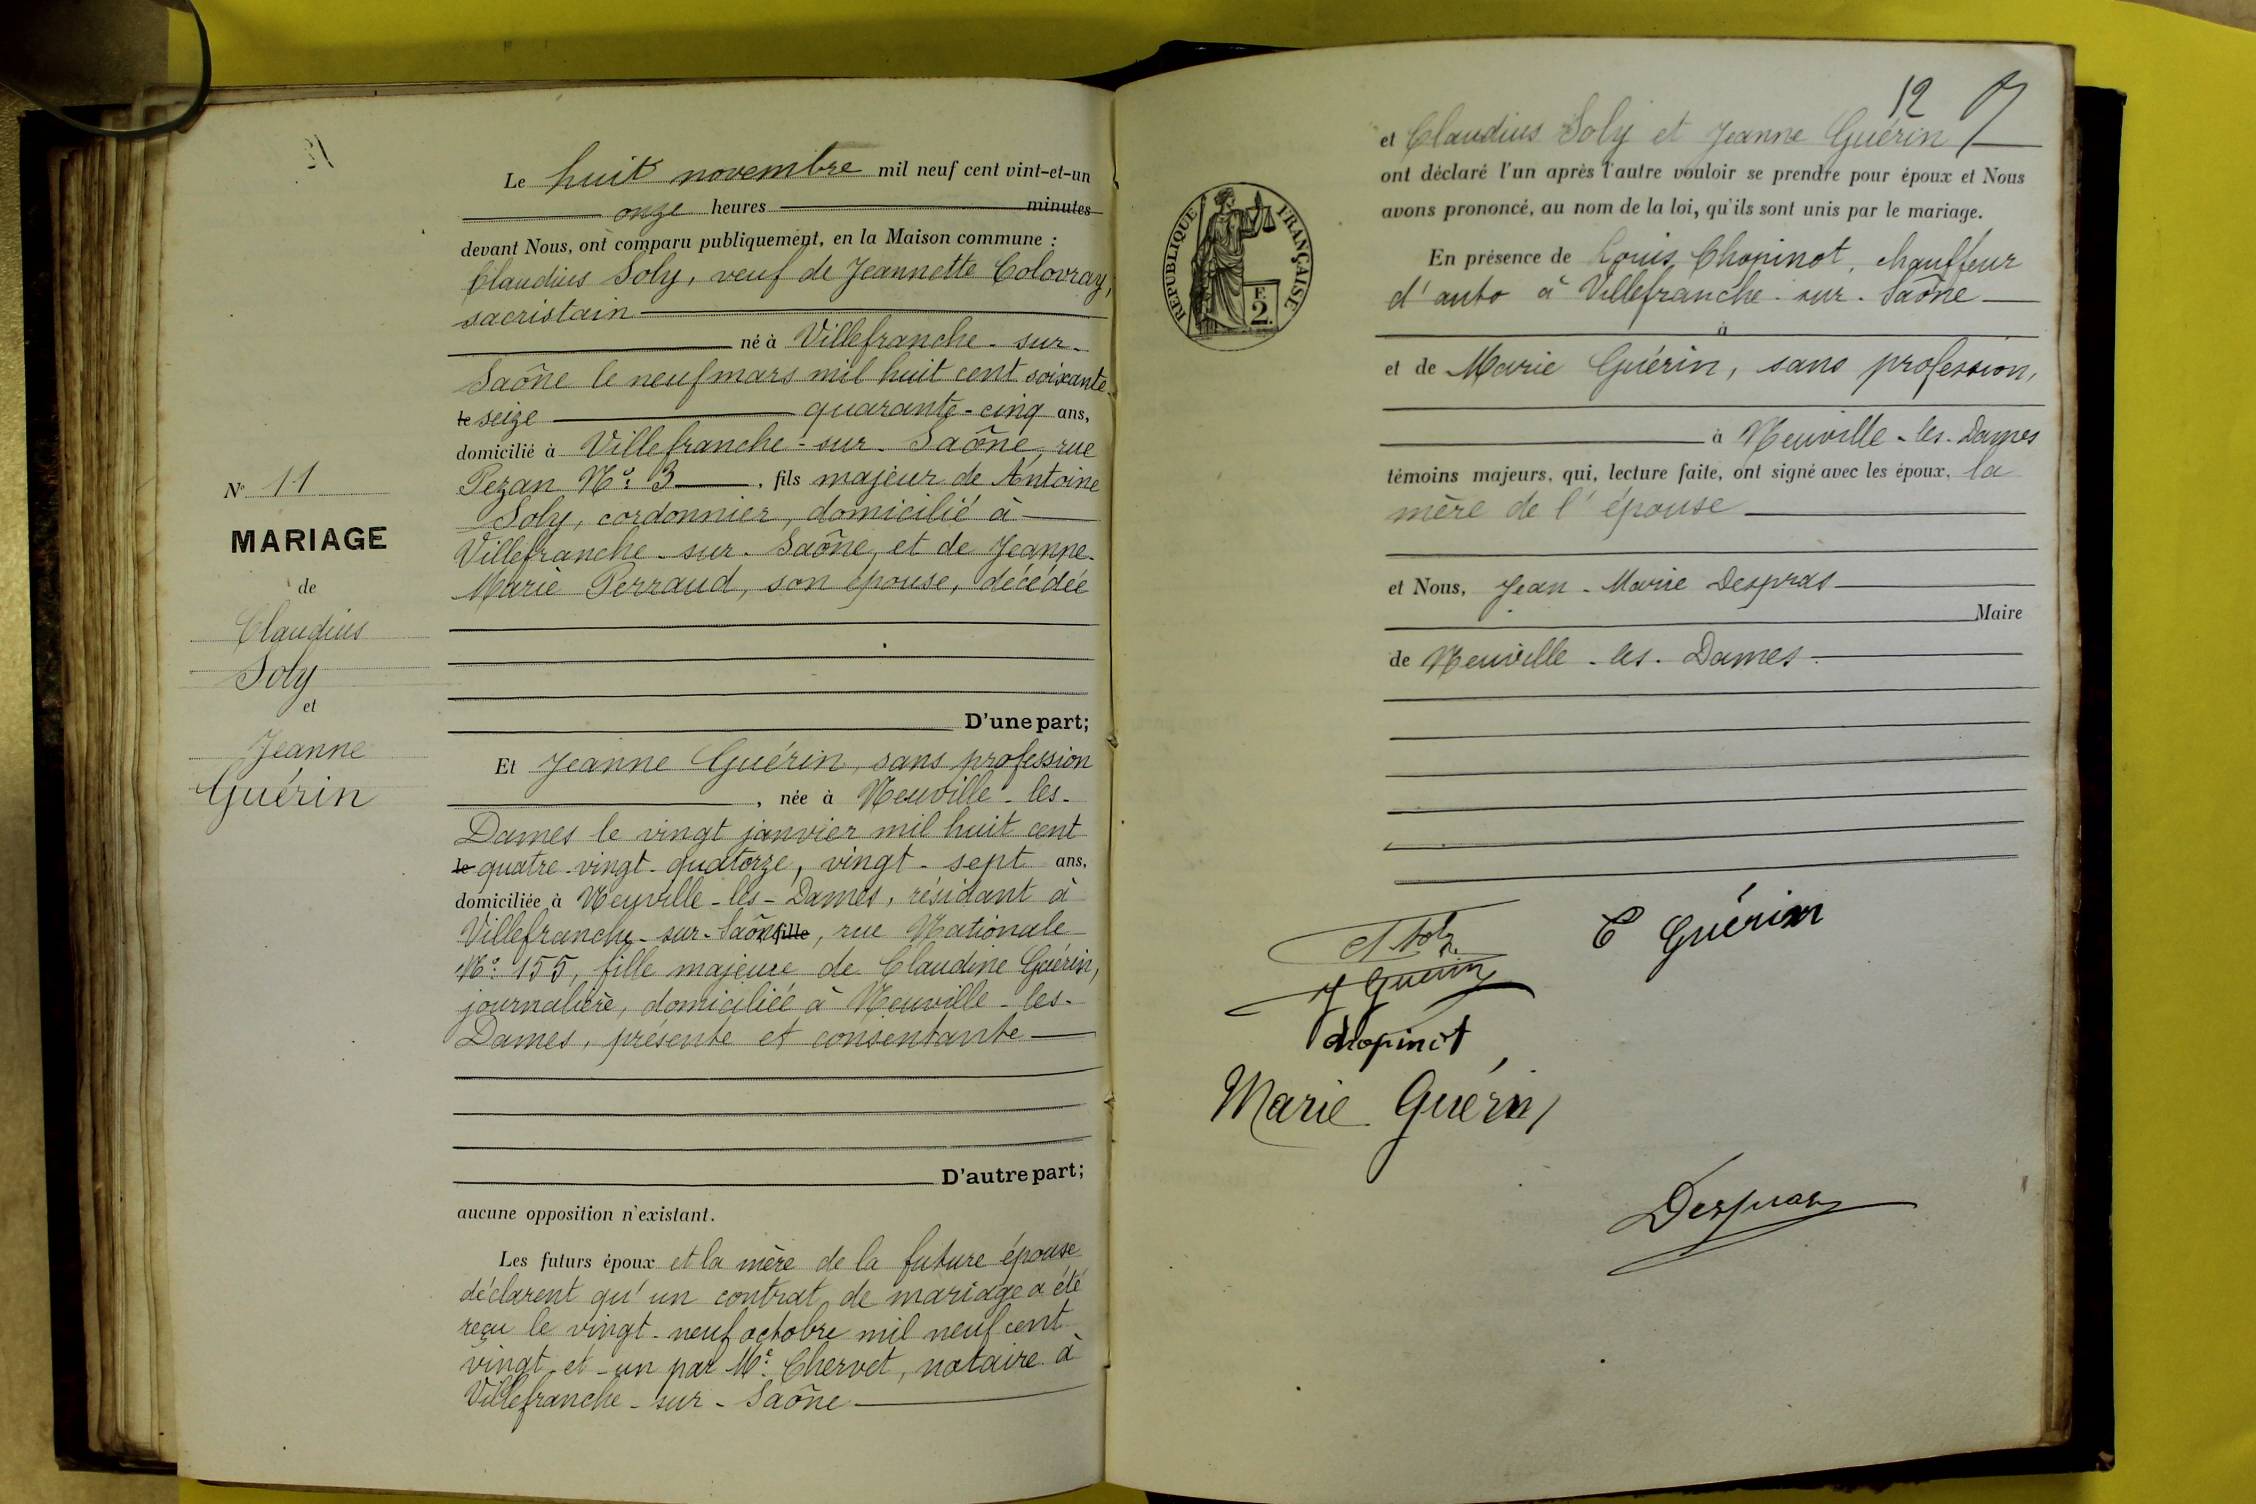 Le huit novembre mil neuf cent vint-et-un
onze heures minutes
devant Nous, ont comparu publiquement, en la Maison commune :
Claudius Soly, veuf de Jeannette Colovray,
sacristain
né à Villefranche-sur-
Saône le neuf mars mil huit cent soixante-
le seize quarante-cinq ans,
domicilié à Villefranche-sur-Saône, rue
Pezan N°: 3, fils majeur de Antoine
Soly, cordonnier, domicilié à
Villefranche-sur-Saône, et de Jeanne-
Marie Perraud, son épouse, décédée
N° 11
MARIAGE
de
Claudius
Soly
et
Jeanne
Guérin
D'une part;
Et Jeanne Guérin, sans profession
, née à Neuville-les-
Dames le vingt janvier mil huit cent
le quatre-vingt-quatorze, vingt-sept ans,
domiciliée à Neuville-les-Dames, résidant à
Villefranche-sur-Saône fille, rue Nationale
N°: 155, fille majeure de Claudine Guérin,
journalière, domiciliée à Neuville-les-
Dames, présente et consentante
D'autre part;
aucune opposition n'existant.
Les futurs époux et la mère de la future épouse
déclarent qu'un contrat de mariage a été
reçu le vingt-neuf octobre mil neuf cent
vingt-et-un par Me: Chervet, notaire à
Villefranche-sur-Saône
12
et Claudius Soly et Jeanne Guérin
ont déclaré l'un après l'autre vouloir se prendre pour époux et Nous
avons prononcé, au nom de la loi, qu'ils sont unis par le mariage.
REPUBLIQUE FRANÇAISE
2 F.
En présence de Louis Chopinot, chauffeur
d'auto à Villefranche-sur-Saône
à
et de Marie Guérin, sans profession,
à Neuville-les-Dames
témoins majeurs, qui, lecture faite, ont signé avec les époux, la
mère de l'épouse
et Nous, Jean-Marie Despras
Maire
de Neuville-les-Dames.
C Guérin
J Guerin
chopinot
Marie Guérin
Despras